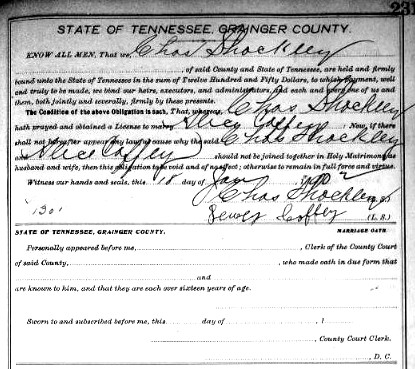 231
STATE OF TENNESSEE, GRAINGER COUNTY.
KNOW ALL MEN, That we, Chas Shockley
of said County and State of Tennessee, are held and firmly
bound unto the State of Tennessee in the sum of Twelve Hundred and Fifty Dollars, to which payment, well
and truly to be made, we bind our heirs, executors, and administrators, and each and every one of us and
them, both jointly and severally, firmly by these presents.
The Condition of the above Obligation is Such, That, whereas, Chas Shockley
hath prayed and obtained a License to marry Alice Coffey Now, if there
shall not hereafter appear any lawful cause why the said Chas Shockley
and Alice Coffey should not be joined together in Holy Matrimony as
husband and wife, then this obligation to be void and of no effect; otherwise to remain in full force and virtue.
Witness our hands and seals, this 18 day of Jan 1902
Chas Shockley
1301 Dewey Coffey (L. S.)
STATE OF TENNESSEE, GRAINGER COUNTY. MARRIAGE OATH
Personally appeared before me, , Clerk of the County Court
of said County, , who made oath in due form that
and
are known to him, and that they are each over sixteen years of age.
Sworn to and subscribed before me, this day of , 1
, County Court Clerk.
, D. C.